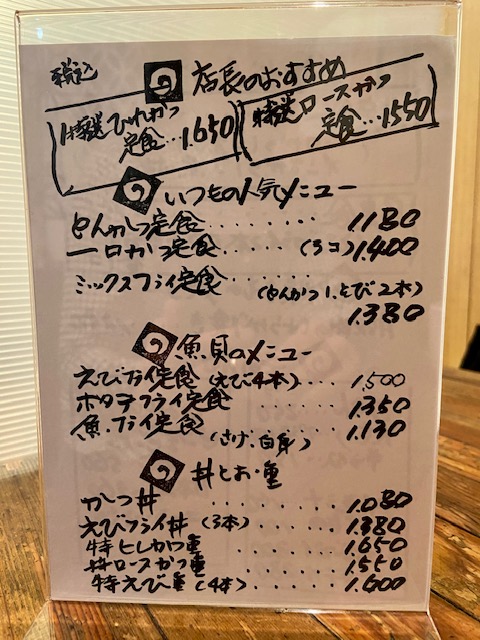 税込
店長のおすすめ
特選ひれかつ定食…1.650
特選ロースかつ定食…1.550
いつもの人気メニュー
とんかつ定食.........1.180
一口かつ定食.....(5コ)1.400
ミックスフライ定食......
(とんかつ1.えび2本)
1.380
魚貝のメニュー
えびフライ定食(えび4本)....1.500
ホタテフライ定食......1.350
魚フライ定食.....1.130
(さけ.白身)
丼とお・重
かつ丼.........1.080
えびフライ丼(3本)......1.380
特ヒレかつ重......1.650
特ロースかつ重......1.550
特えび重(4本)....1.600